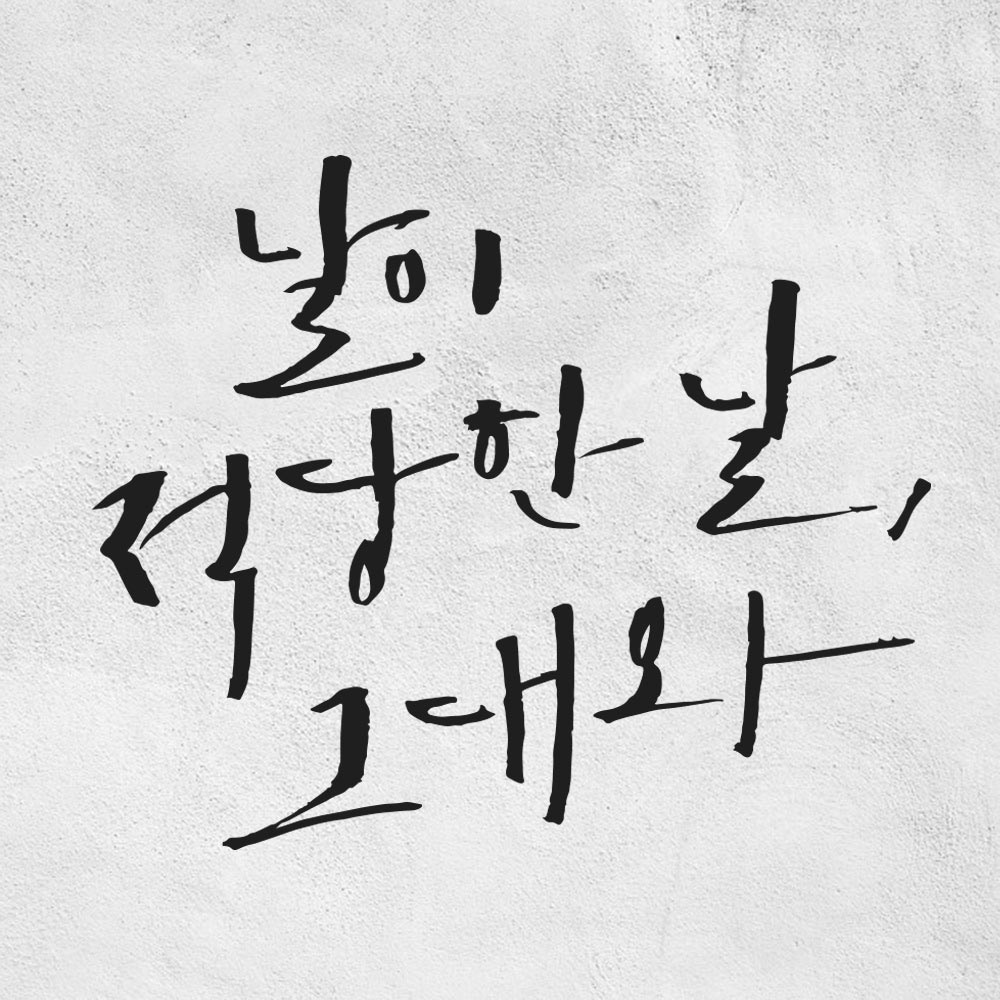 날이
적당한 날,
그대와